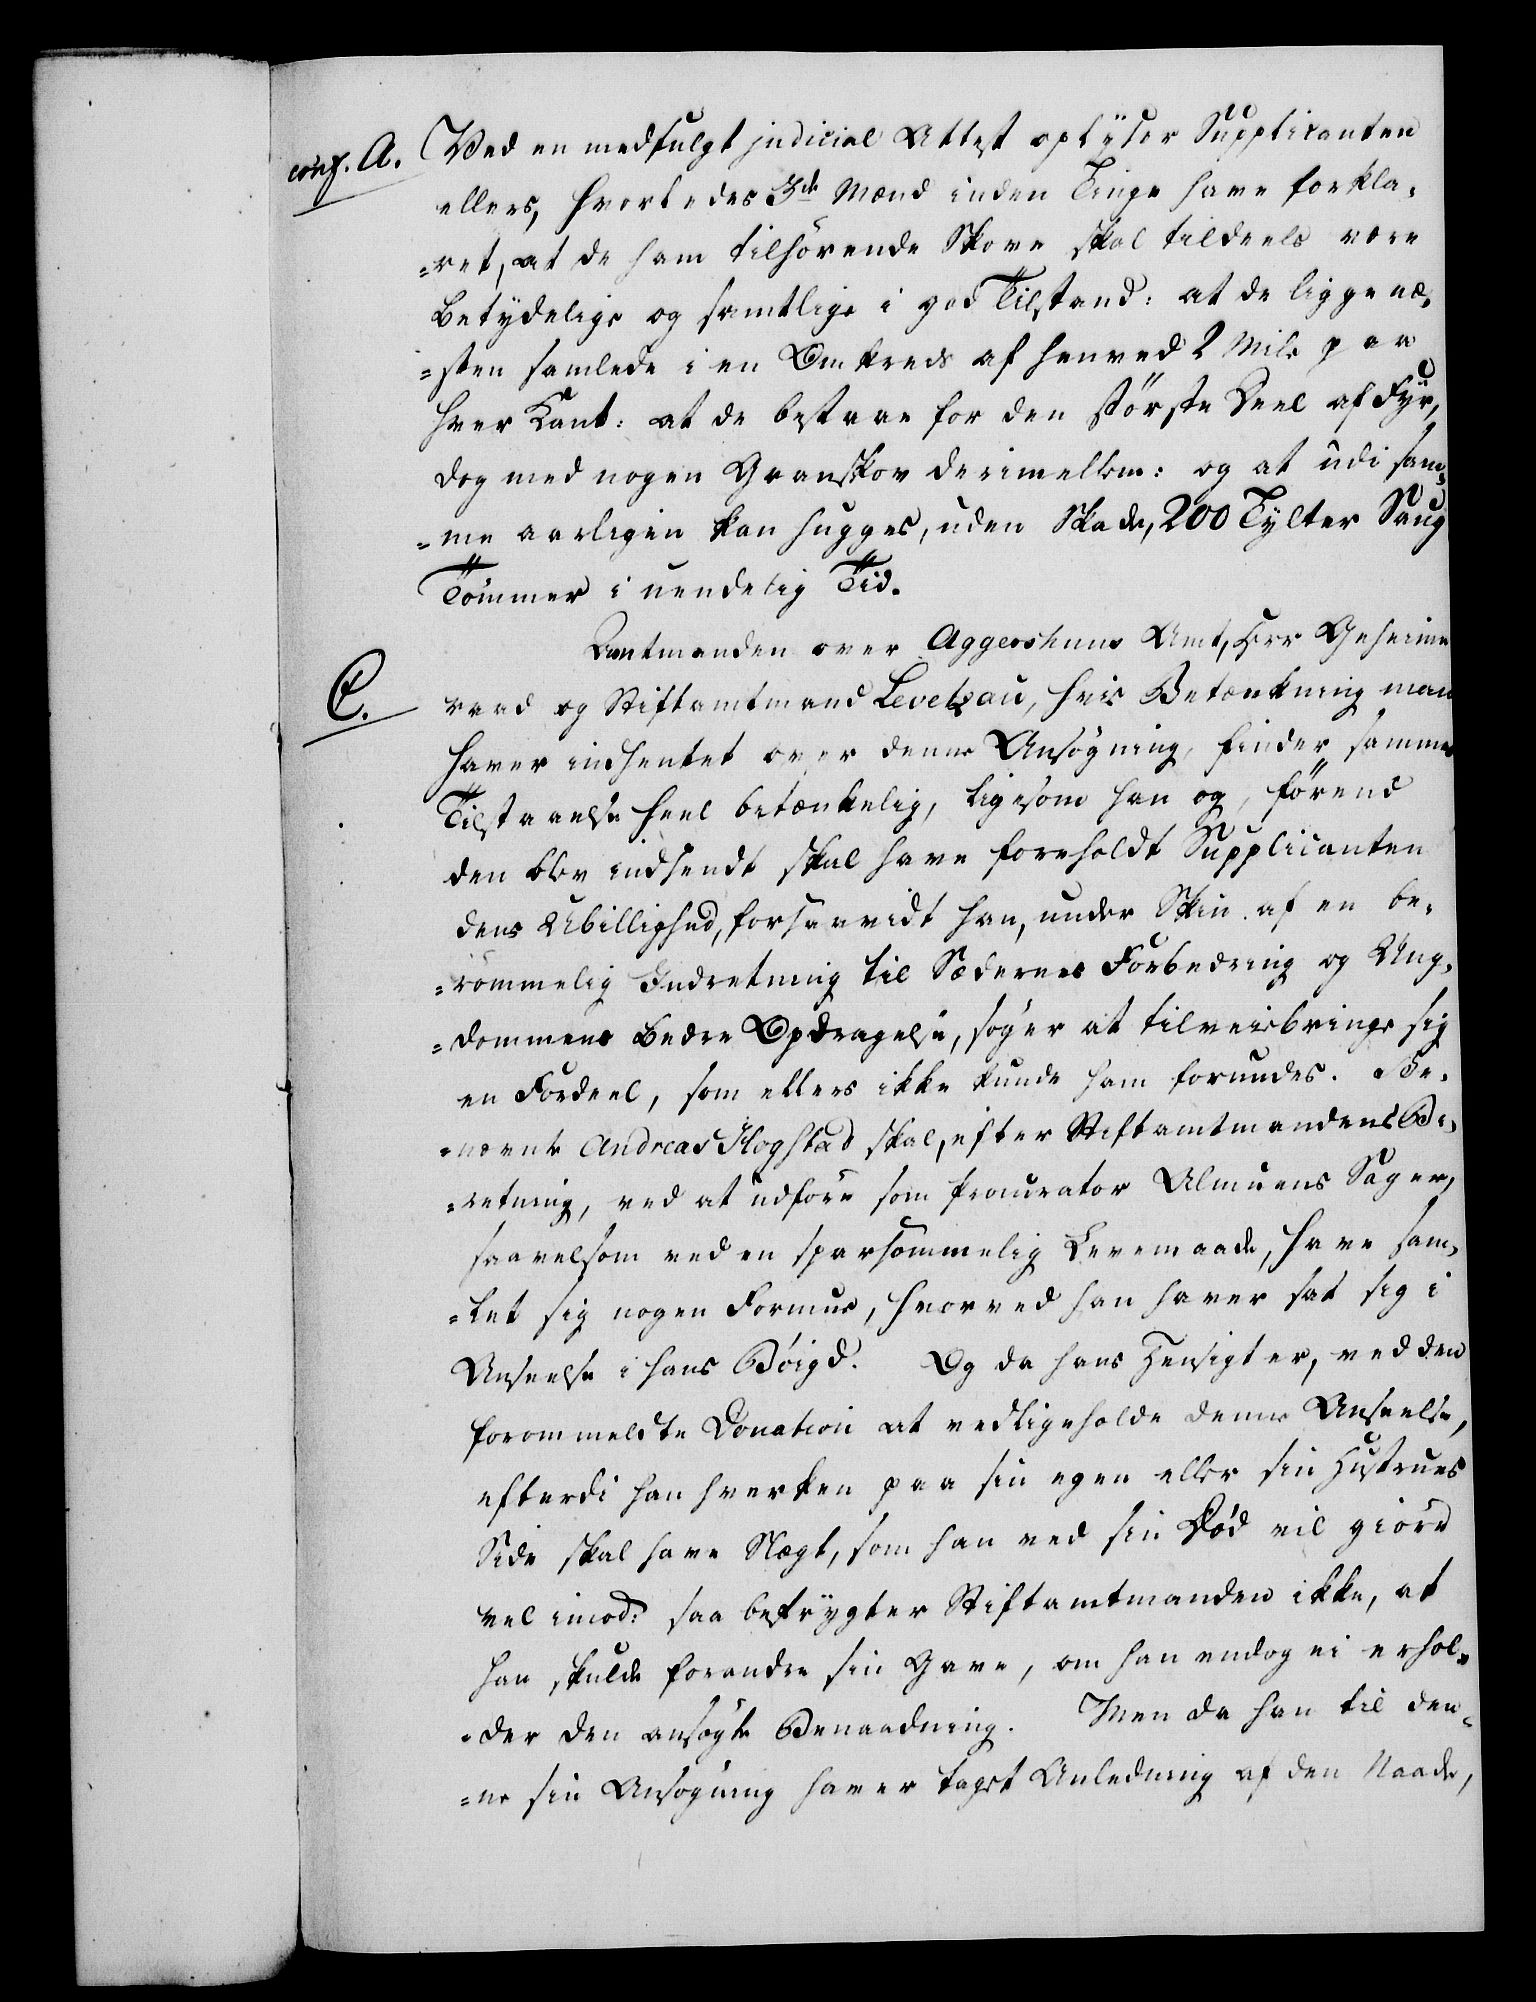 conf. A. Ved en medfulgt judicial Attest oplyser Supplicanten
ellers, hvorledes 3de Mænd inden Tinge have forkla-
=ret, at de ham tilhörende Skove skal tildeels være
betydelige og samtlige i god Tilstand: at de ligge næ-
=sten samlede i en Omkreds af henved 2 Mile paa
hver Kant: at de bestaae for den störste Deel af Fyr,
dog med nogen Granskov derimellem: og at udi sam-
=me aarligen kan hugges, uden Skade, 200 Tylter Saug
Tömmer i uendelig Tid.
Amtmanden over Aggershuus Amt, Herr Geheime
C. raad og Stiftamtmand Levetzau, hvis Betænkning man
haver indhentet over denne Ansögning, finder sammes
Tilstaaelse heel betænkelig, ligesom han og, förend
den blev indsendt skal have foreholdt Supplicanten
dens Ubillighed, forsaavidt han, under Skin af en be-
=römmelig Indretning til Sædernes Forbedring og Ung-
=dommens bedre Opdragelse, söger at tilveiebringe sig
en Fordeel, som ellers ikke kunde ham forundes. Be-
=nævnte Andreas Flogstad skal, efter Stiftamtmandens Be-
=retning, ved at udföre som Procurator Almuens Sager,
saavelsom ved en sparsommelig Levemaade, have sam-
=let sig nogen Formue, hvorved han haver sat sig i
Anseelse i hans Böigd. Og da hans Hensigt er, ved den
forommeldte Donation at vedligeholde denne Anseelse,
efterdi han hverken paa sin egen eller sin Hustrues
Side skal have Slægt, som han ved sin Död vil giöre
vel imod: saa befrygter Stiftamtmanden ikke, at
han skulde forandre sin Gave, om han endog ei erhol-
=der den ansögte Benaadning. Men da han til den-
=ne sin Ansögning haver taget Anledning af den Naade,